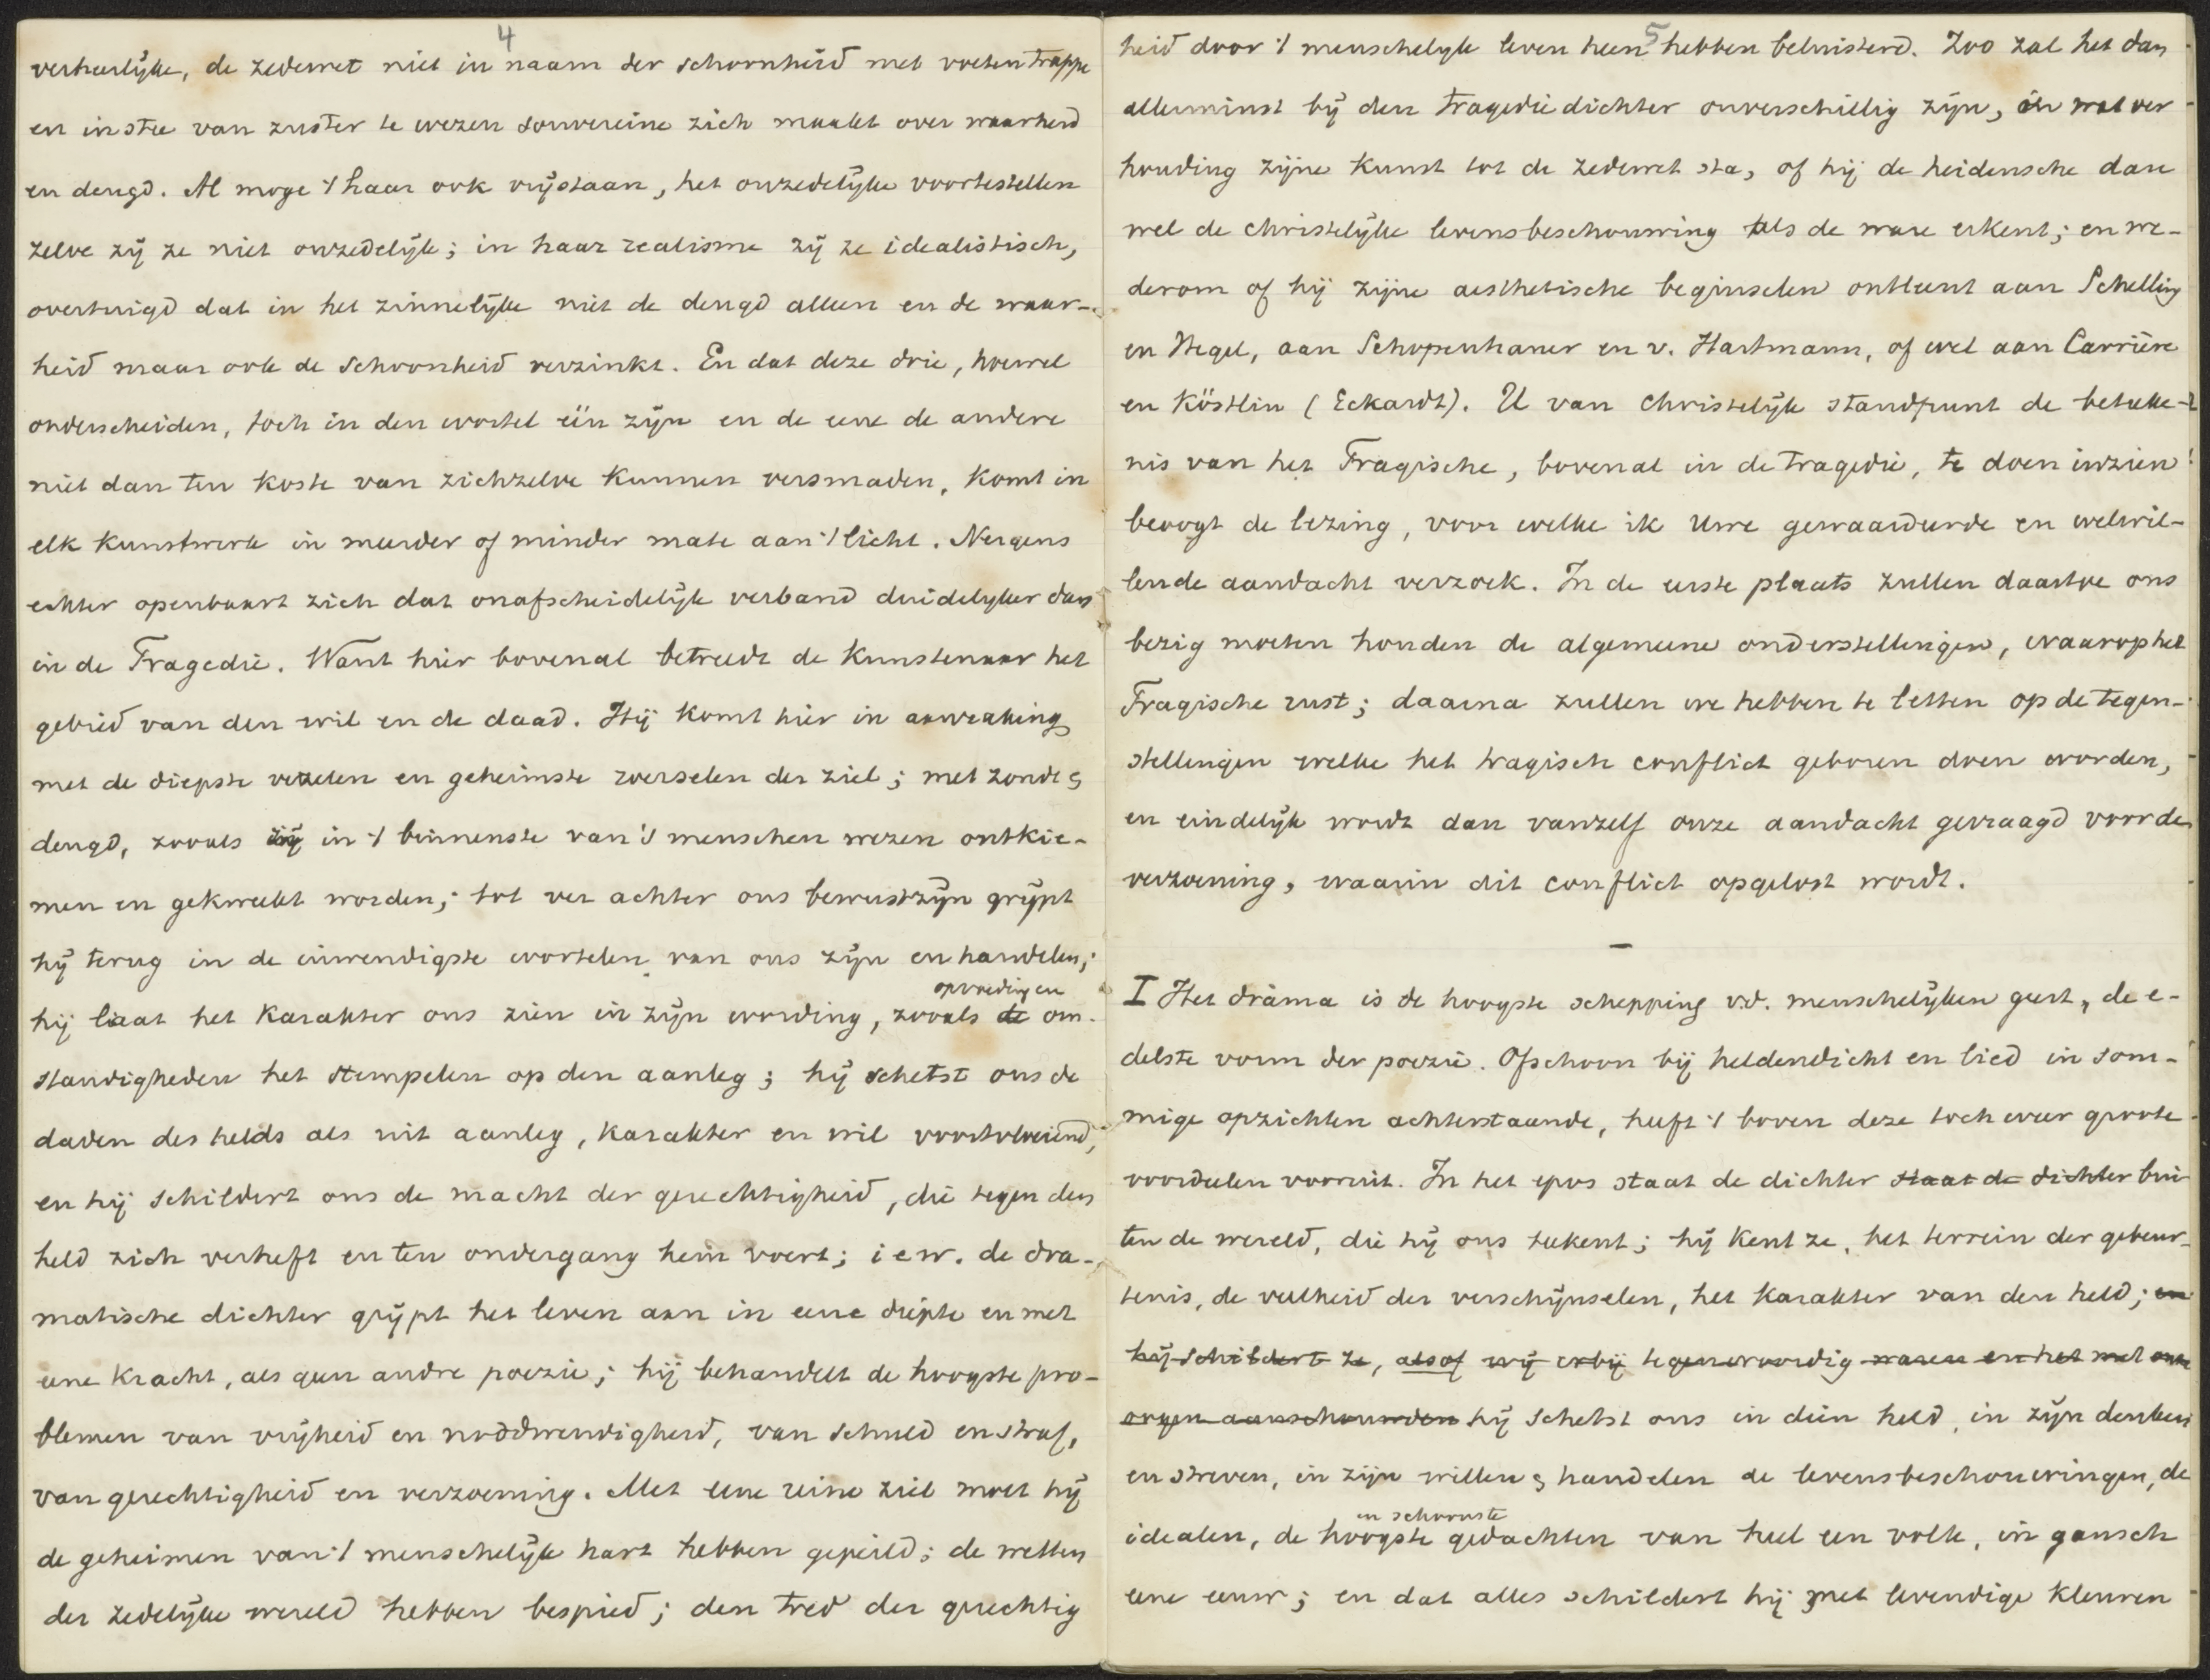 4
verheerlijke, de zedewet niet in naam der schoonheid met voeten trappe
en in stee van zuster te wezen souvereine zich maakt over waarheid
en deugd. Al moge 't haar ook vrijstaan, het onzedelijke voortestellen
zelve zij ze niet onzedelijk; in haar realisme zij ze idealistisch,
overtuigd dat in het zinnelijke niet de deugd alleen en de waar-
heid maar ook de schoonheid verzinkt. En dat deze drie, hoewel
onderscheiden, toch in den wortel één zijn en de eene de andere
niet dan ten koste van zichzelve kunnen versmaden, komt in
elk kunstwerk in meerder of minder mate aan 't licht. Nergens
echter openbaart zich dat onafscheidelijk verband duidelyker dan
in de Tragedie. Want hier bovenal betreedt de kunstenaar het
gebied van den wil en de daad. Hij komt hier in aanraking
met de diepste vezelen en geheimste roerselen der ziel; met zonde &
deugd, zooals zij in 't binnenste van 's menschen wezen ontkie-
men en gekweekt worden; tot ver achter ons bewustzijn grijpt
hij terug in de inwendigste wortelen van ons zijn en handelen;
opvoeding en
hij laat het karakter ons zien in zijn wording, zooals de om-
standigheden het stempelen op den aanleg; hij schetst ons de
daden des helds als uit aanleg, karakter en wil voortvloeiend,
en hij schildert ons de macht der gerechtigheid, die tegen den
held zich verheft en ten ondergang hem voert; i e w. de dra-
matische dichter grijpt het leven aan in eene diepte en met
eene kracht, als geen andre poezie; hij behandelt de hoogste pro-
blemen van vrijheid en noodwendigheid, van schuld en straf,
van gerechtigheid en verzoening. Met eene reine ziel moet hij
de geheimen van 't menschelijk hart hebben gepeild; de wetten
der zedelijke wereld hebben bespied; den tred der gerechtig
5
heid door 't menschelyk leven heen hebben beluisterd. Zoo zal het dan
allerminst bij den tragediedichter onverschillig zijn, in wat ver
houding zijne kunst tot de zedewet sta, of hij de heidensche dan
wel de christelijke levensbeschouwing als de ware erkent; en we-
derom of hij zijne aesthetische beginselen ontleent aan Schelling
en Hegel, aan Schopenhauer en v. Hartmann, of wel aan Carrière
en Köstlin (Eckardt). U van christelijk standpunt de beteeke-
nis van het Tragische, bovenal in de tragedie, te doen inzien
beoogt de lezing, voor welke ik Uwe gewaardeerde en welwil-
lende aandacht verzoek. In de eerste plaats zullen daartoe ons
bezig moeten houden de algemeene onderstellingen, waarop het
Tragische rust; daarna zullen we hebben te letten op de tegen-
stellingen welke het tragisch conflict geboren doen worden,
en eindelijk wordt dan vanzelf onze aandacht gevraagd voor de
verzoening, waarin dit conflict opgelost wordt.
—
I Het drama is de hoogste schepping v.d. menschelijken geest, de e-
delste vorm der poezie. Ofschoon bij heldendicht en lied in som-
mige opzichten achterstaande, heeft 't boven deze toch weer groote
voordeelen vooruit. In het epos staat de dichter staat de dichter bui
ten de wereld, die hij ons teekent; hij kent ze, het terrein der gebeur-
tenis, de veelheid der verschijnselen, het karakter van den held; en
hij schildert ze, alsof wij erbij tegenwoordig waren en het met onze
oogen aanschouwden hij schetst ons in dien held, in zijn denken
en streven, in zijn willen & handelen de levensbeschouwingen, de
en schoonste
idealen, de hoogste gedachten van heel een volk, in gansch
eene eeuw; en dat alles schildert hij met levendige kleuren